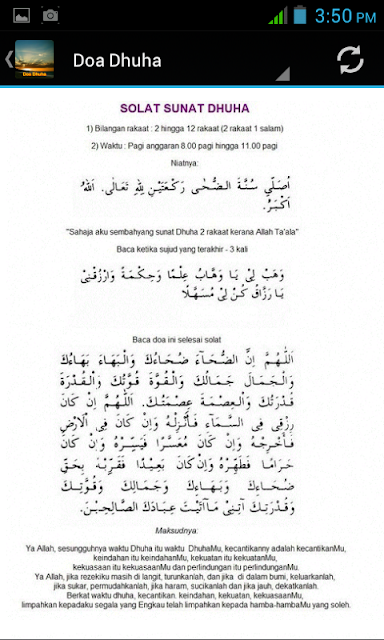 3:50 PM
Doa Dhuha
Doa Dhuha
SOLAT SUNAT DHUHA
1) Bilangan rakaat : 2 hingga 12 rakaat (2 rakaat 1 salam)
2) Waktu : Pagi anggaran 8.00 pagi hingga 11.00 pagi
Niatnya:
اُصَلِّي سُنَّةَ الضُّحٰى رَكْعَتَيْنِ لِلّٰهِ تَعَالٰى. اَللهُ
اَكْبَرُ.
"Sahaja aku sembahyang sunat Dhuha 2 rakaat kerana Allah Ta'ala"
Baca ketika sujud yang terakhir - 3 kali
وَهَبْ لِيْ يَا وَهَّابُ عِلْمًا وَحِكْمَةً وَارْزُقْنِيْ
يَا رَزَّاقُ كُنْ لِيْ مُسَهِّلًا
Baca doa ini selesai solat
اَللّٰهُمَّ اِنَّ الضُّحَآءَ ضُحَاءُكَ وَالْبَهَاءَ بَهَاءُكَ
وَالْجَمَالَ جَمَالُكَ وَالْقُوَّةَ قُوَّتُكَ وَالْقُدْرَةَ
قُدْرَتُكَ وَالْعِصْمَةَ عِصْمَتُكَ. اَللّٰهُمَّ اِنْ كَانَ
رِزْقِى فِى السَّمَآءِ فَأَنْزِلْهُ وَاِنْ كَانَ فِى اْلاَرْضِ
فَأَخْرِجْهُ وَاِنْ كَانَ مُعَسَّرًا فَيَسِّرْهُ وَاِنْ كَانَ
حَرَامًا فَطَهِّرْهُ وَاِنْ كَانَ بَعِيْدًا فَقَرِّبْهُ بِحَقِّ
ضُحَاءِكَ وَبَهَاءِكَ وَجَمَالِكَ وَقُوَّتِكَ
وَقُدْرَتِكَ آتِنِىْ مَآاَتَيْتَ عِبَادَكَ الصَّالِحِيْنَ.
Maksudnya:
Ya Allah, sesungguhnya waktu Dhuha itu waktu DhuhaMu, kecantikanny adalah kecantikanMu,
keindahan itu keindahanMu, kekuatan itu kekuatanMu,
kekuasaan itu kekuasaanMu dan perlindungan itu perlindunganMu.
Ya Allah, jika rezekiku masih di langit, turunkanlah, dan jika di dalam bumi, keluarkanlah,
jika sukar, permudahkanlah, jika haram, sucikanlah dan jika jauh, dekatkanlah.
Berkat waktu dhuha, kecantikan. keindahan, kekuatan, kekuasaanMu,
limpahkan kepadaku segala yang Engkau telah limpahkan kepada hamba-hambaMu yang soleh.